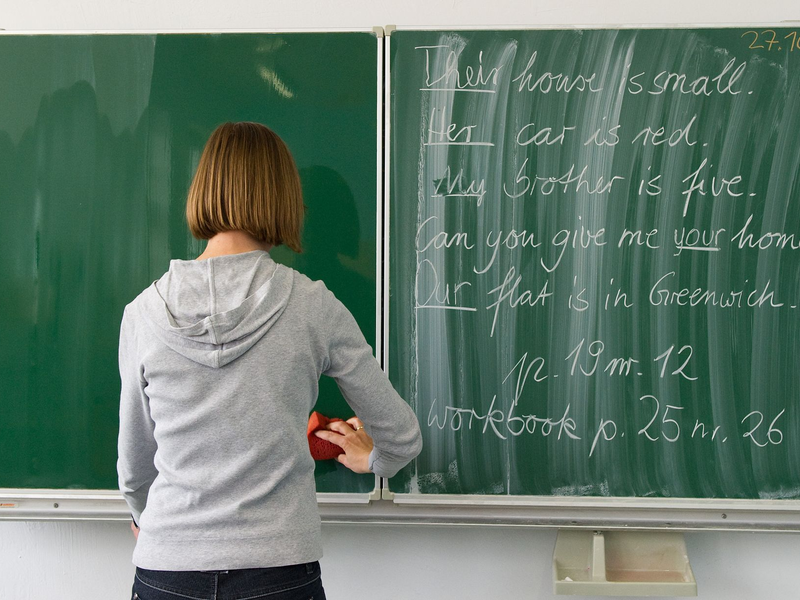 27.10
Their house is small.
Her car is red.
My brother is five.
Can you give me your home
Our flat is in Greenwich.
p. 19 nr. 12
workbook p. 25 nr. 26